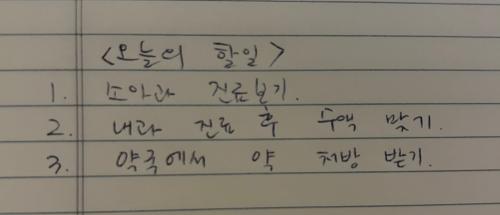 <오늘의 할일>
1. 소아과 진료보기.
2. 내과 진료 후 수액 맞기.
3. 약국에서 약 처방 받기.